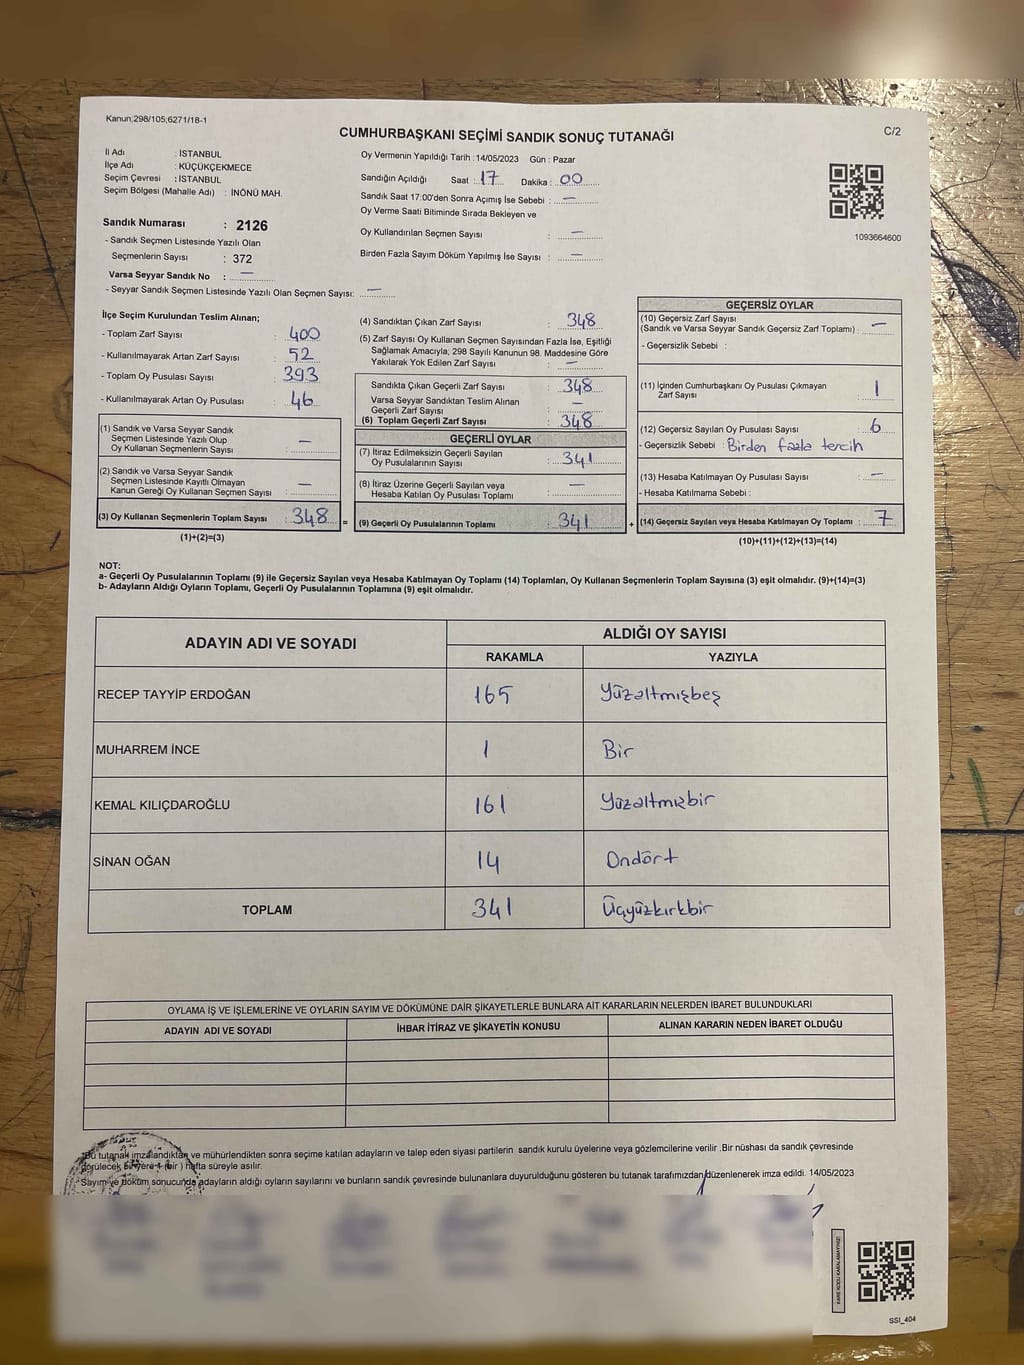 Kanun;298/105;6271/18-1
C/2
CUMHURBAŞKANI SEÇİMİ SANDIK SONUÇ TUTANAĞI
İl Adı : İSTANBUL
İlçe Adı : KÜÇÜKÇEKMECE
Seçim Çevresi : İSTANBUL
Seçim Bölgesi (Mahalle Adı) : İNÖNÜ MAH.
Sandık Numarası : 2126
- Sandık Seçmen Listesinde Yazılı Olan
Seçmenlerin Sayısı : 372
Varsa Seyyar Sandık No : —
- Seyyar Sandık Seçmen Listesinde Yazılı Olan Seçmen Sayısı: —
Oy Vermenin Yapıldığı Tarih : 14/05/2023 Gün : Pazar
Sandığın Açıldığı Saat : 17 Dakika : 00
Sandık Saat 17:00'den Sonra Açımış İse Sebebi : —
Oy Verme Saati Bitiminde Sırada Bekleyen ve
Oy Kullandırılan Seçmen Sayısı : —
Birden Fazla Sayım Döküm Yapılmış İse Sayısı : —
1093664600
İlçe Seçim Kurulundan Teslim Alınan;
- Toplam Zarf Sayısı : 400
- Kullanılmayarak Artan Zarf Sayısı : 52
- Toplam Oy Pusulası Sayısı : 393
- Kullanılmayarak Artan Oy Pusulası : 46
(1) Sandık ve Varsa Seyyar Sandık
Seçmen Listesinde Yazılı Olup
Oy Kullanan Seçmenlerin Sayısı : —
(2) Sandık ve Varsa Seyyar Sandık
Seçmen Listesinde Kayıtlı Olmayan
Kanun Gereği Oy Kullanan Seçmen Sayısı : —
(3) Oy Kullanan Seçmenlerin Toplam Sayısı : 348 =
(1)+(2)=(3)
(4) Sandıktan Çıkan Zarf Sayısı : 348
(5) Zarf Sayısı Oy Kullanan Seçmen Sayısından Fazla İse, Eşitliği
Sağlamak Amacıyla; 298 Sayılı Kanunun 98. Maddesine Göre
Yakılarak Yok Edilen Zarf Sayısı : —
Sandıkta Çıkan Geçerli Zarf Sayısı : 348
Varsa Seyyar Sandıktan Teslim Alınan
Geçerli Zarf Sayısı : —
(6) Toplam Geçerli Zarf Sayısı : 348
GEÇERLİ OYLAR
(7) İtiraz Edilmeksizin Geçerli Sayılan
Oy Pusulalarının Sayısı : 341
(8) İtiraz Üzerine Geçerli Sayılan veya
Hesaba Katılan Oy Pusulası Toplamı : —
(9) Geçerli Oy Pusulalarının Toplamı : 341 +
GEÇERSİZ OYLAR
(10) Geçersiz Zarf Sayısı
(Sandık ve Varsa Seyyar Sandık Geçersiz Zarf Toplamı) : —
- Geçersizlik Sebebi :
(11) İçinden Cumhurbaşkanı Oy Pusulası Çıkmayan
Zarf Sayısı : 1
(12) Geçersiz Sayılan Oy Pusulası Sayısı : 6
- Geçersizlik Sebebi : Birden fazla tercih
(13) Hesaba Katılmayan Oy Pusulası Sayısı : —
- Hesaba Katılmama Sebebi :
(14) Geçersiz Sayılan veya Hesaba Katılmayan Oy Toplamı : 7
(10)+(11)+(12)+(13)=(14)
NOT:
a- Geçerli Oy Pusulalarının Toplamı (9) ile Geçersiz Sayılan veya Hesaba Katılmayan Oy Toplamı (14) Toplamları, Oy Kullanan Seçmenlerin Toplam Sayısına (3) eşit olmalıdır. (9)+(14)=(3)
b- Adayların Aldığı Oyların Toplamı, Geçerli Oy Pusulalarının Toplamına (9) eşit olmalıdır.
ADAYIN ADI VE SOYADI ALDIĞI OY SAYISI
RAKAMLA YAZIYLA
RECEP TAYYİP ERDOĞAN 165 Yüzaltmışbeş
MUHARREM İNCE 1 Bir
KEMAL KILIÇDAROĞLU 161 Yüzaltmışbir
SİNAN OĞAN 14 Ondört
TOPLAM 341 Üçyüzkırkbir
OYLAMA İŞ VE İŞLEMLERİNE VE OYLARIN SAYIM VE DÖKÜMÜNE DAİR ŞİKAYETLERLE BUNLARA AİT KARARLARIN NELERDEN İBARET BULUNDUKLARI
ADAYIN ADI VE SOYADI İHBAR İTİRAZ VE ŞİKAYETİN KONUSU ALINAN KARARIN NEDEN İBARET OLDUĞU
Bu tutanak imzalandıktan ve mühürlendikten sonra seçime katılan adayların ve talep eden siyasi partilerin sandık kurulu üyelerine veya gözlemcilerine verilir. Bir nüshası da sandık çevresinde
görülecek bir yere 1 (bir) hafta süreyle asılır.
Sayım ve döküm sonucunda adayların aldığı oyların sayılarını ve bunların sandık çevresinde bulunanlara duyurulduğunu gösteren bu tutanak tarafımızdan düzenlenerek imza edildi. 14/05/2023
KARE KODU KARALAMAYINIZ!
SSI_404